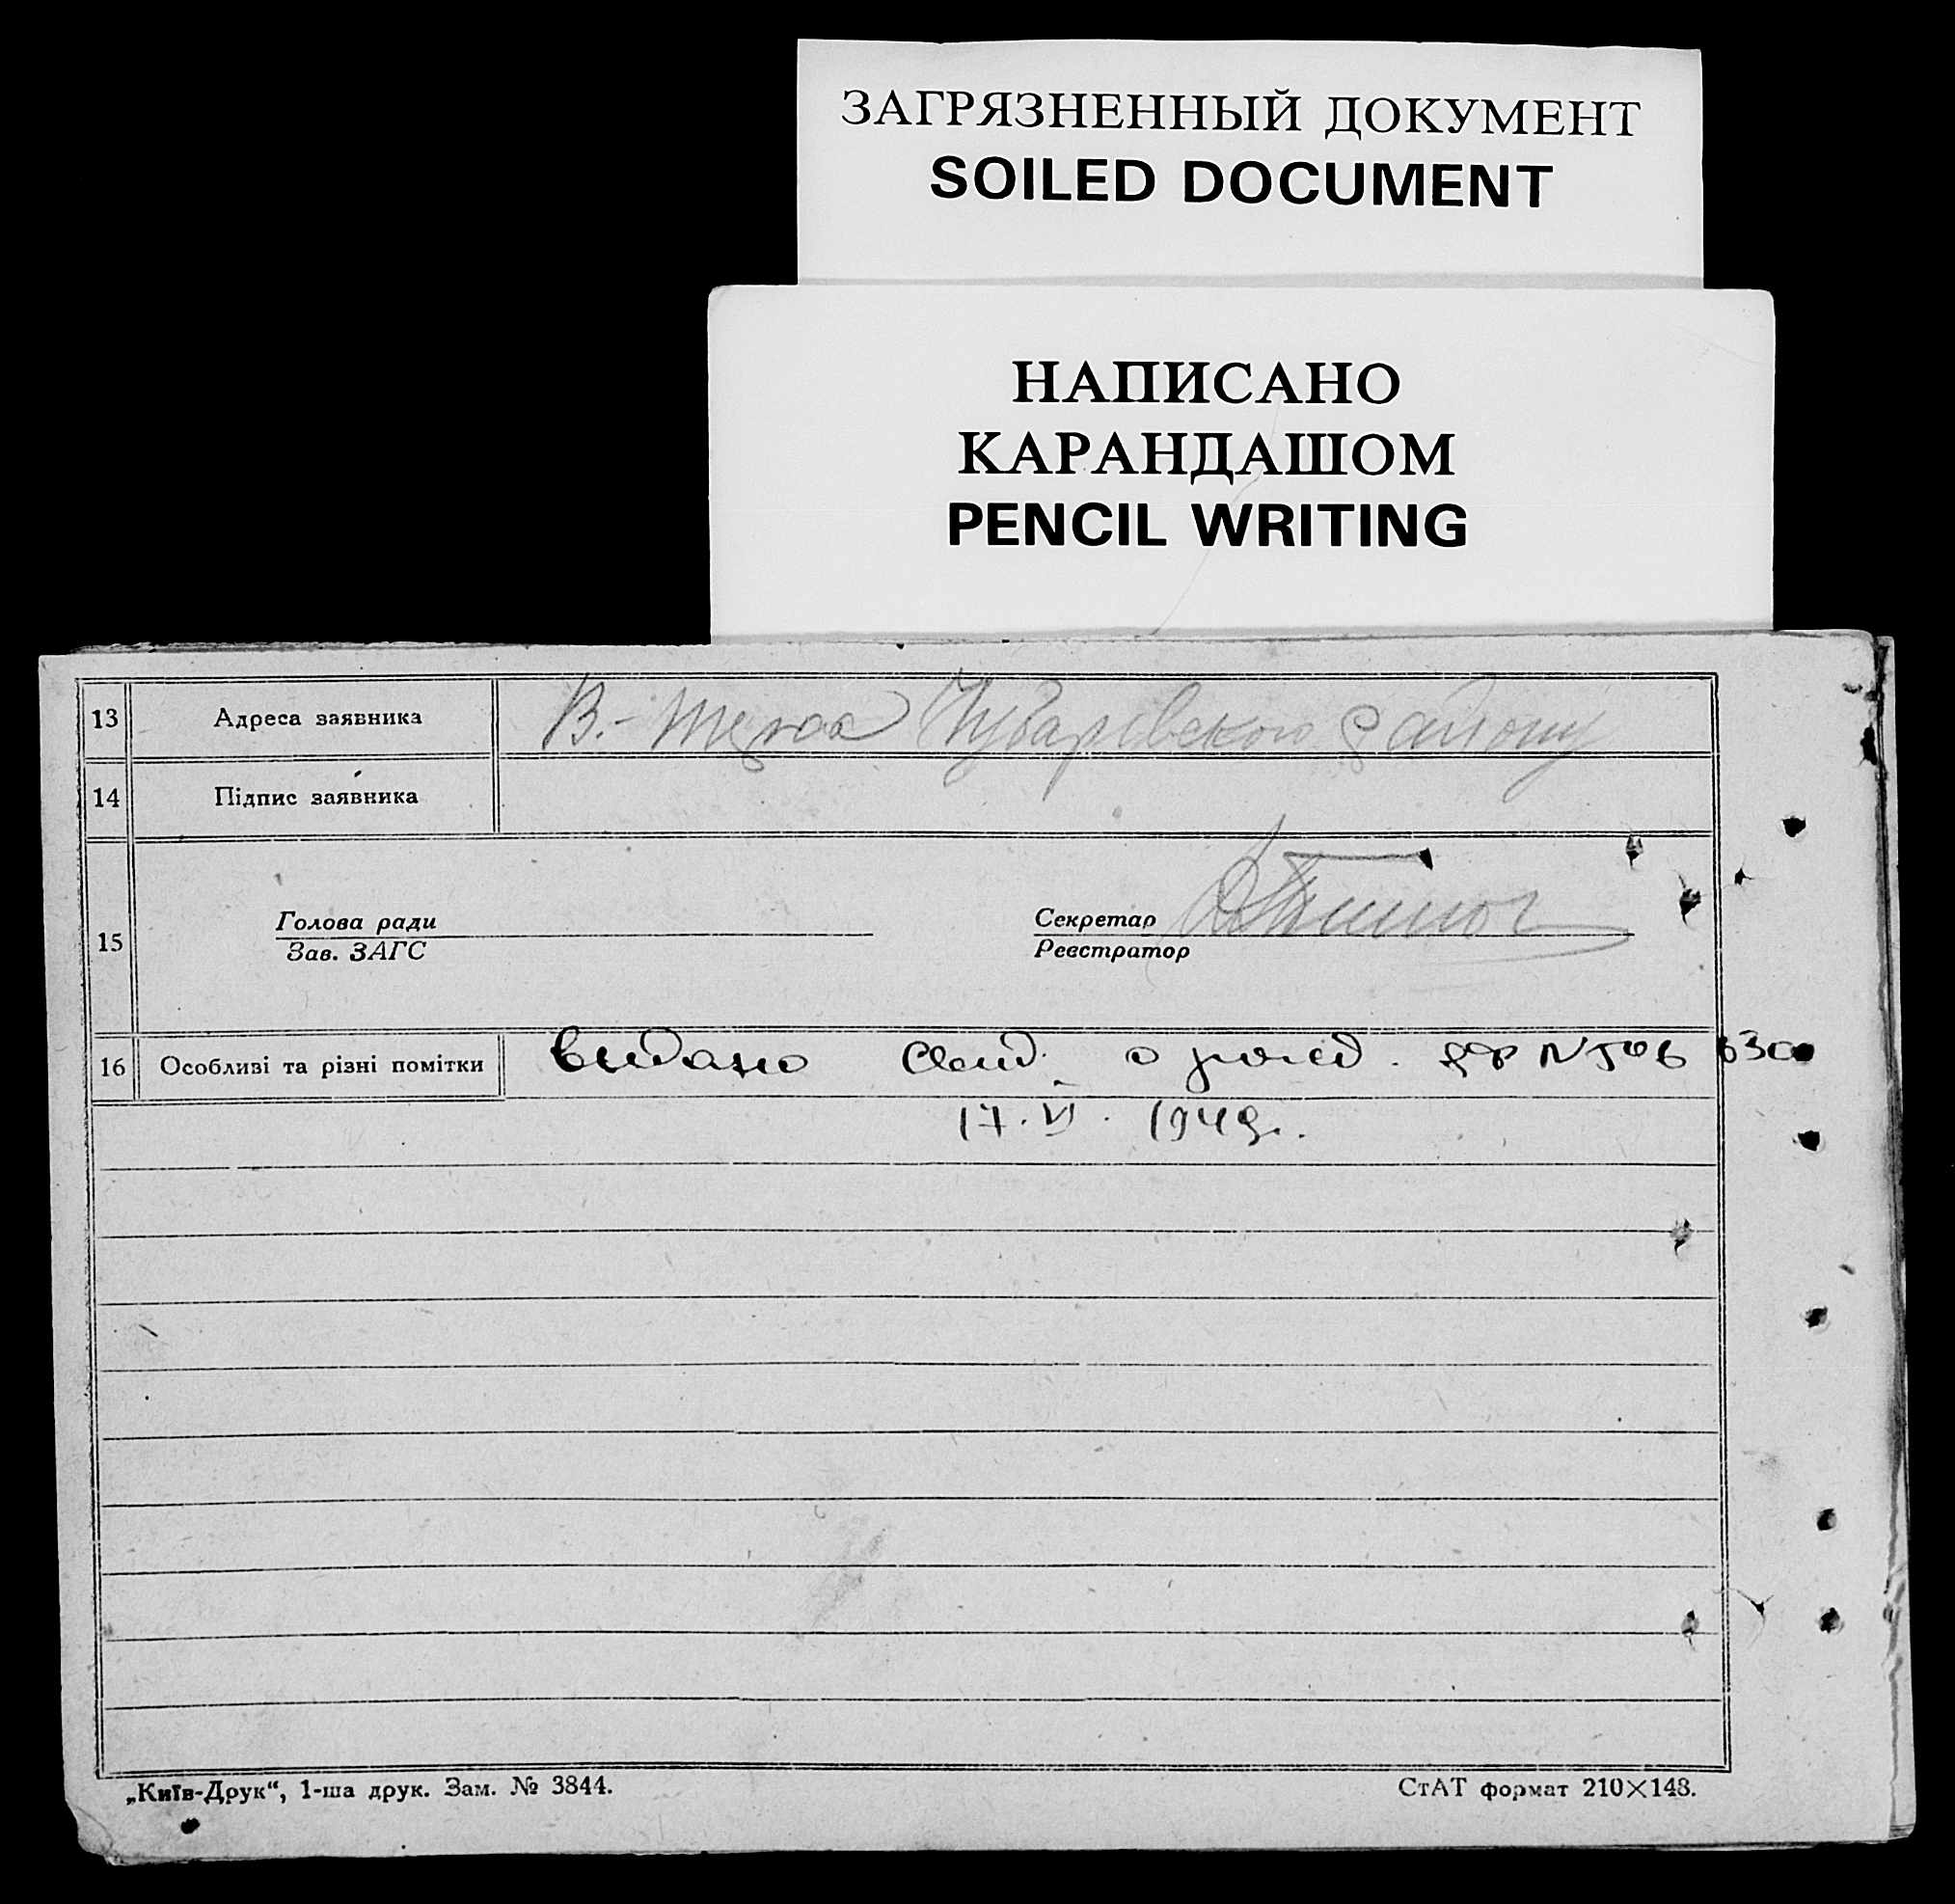 ЗАГРЯЗНЕННЫЙ ДОКУМЕНТ
SOILED DOCUMENT
НАПИСАНО
КАРАНДАШОМ
PENCIL WRITING
13 Адреса заявника В.- Чубарівського району
14 Підпис заявника
Голова ради Секретар
15
Зав. ЗАГС Реєстратор
16 Особливі та різні помітки видано о рожд.
17. VI. 1949г.
„Київ-Друк“, 1-ша друк. Зам. № 3844.
СтАТ формат 210×148.